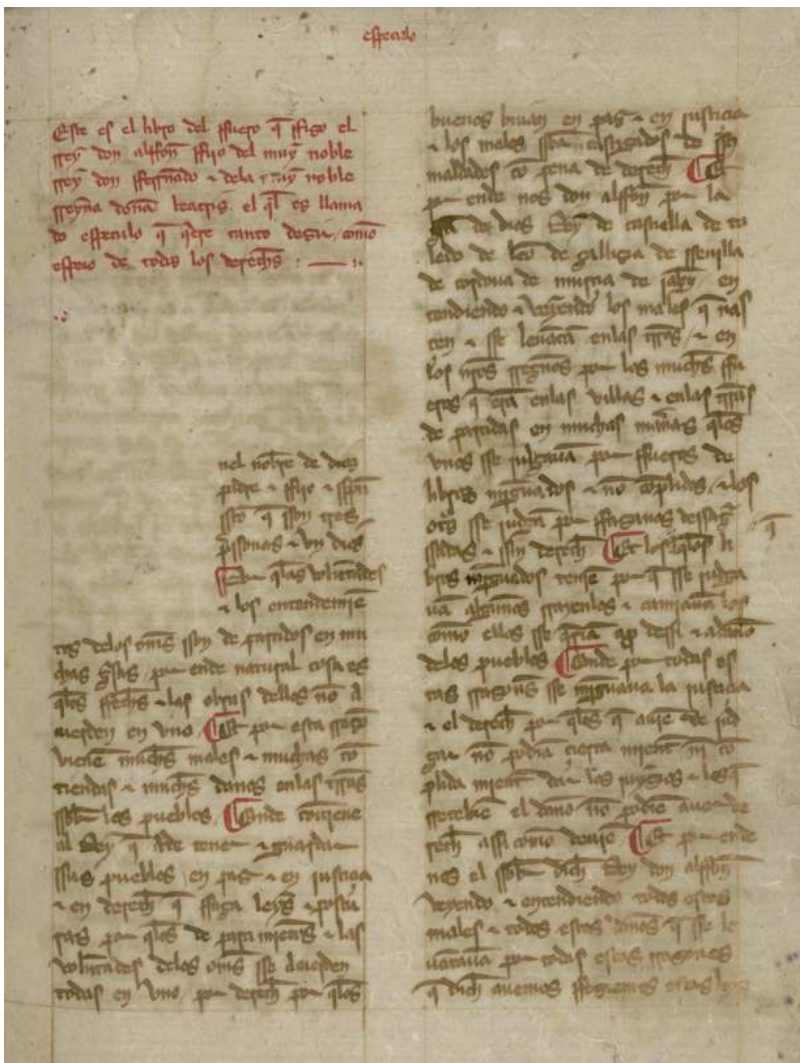 especulo
Este es el libro del ffuero q̄ ffizo el
rrey don alffon̄ ffijo del muy noble
rrey don fferrnādo e dela muy noble
rreyña doña beatris. el q̄l es llama
do espeçulo q̄ q̄ere tanto dezir como
espeio de todos los derechōs
nel nōbre de dios
padre e ffijo e sp̄u
ssc̄o q̄ sson tres
p̄ssonas e vn dios
Por q̄ las voluntades
e los entendemiē
tos delos om̄s sson de partidos en mu
chas gīsas por ende natural cosa es
q̄los ffechōs e las obras dellos nō a
cuerden en vno Et por esta rrazō
vienē muchōs males e muchas cō
tiendas e muchōs danos enlas tr̄ras
ssobr̄ los pueblos Onde cōuiene
al Rey q̄ a de tener e guardar
ssus pueblos en paz e en justiçia
e en derechō q̄ ffaga leyes e postu
ras por q̄los de partimiētos e las
volūtades delos om̄s sse acuerden
todas en vno por derechō por q̄los
buenos biuan en paz e en justiçia
e los malos sseā castigados de ssus
maldades cō pena de derechō Et
por ende nos don alffon̄ por la
gr̄a de dios Rey de castiella de to
ledo de leō de gallizia de sseuilla
de cordoua de murçia de jahen en
tendiendo e veyendo los males q̄ nas
çen e sse leuātā enlas tr̄ras e en
los nr̄os rregnos por los muchōs ffu
eros q̄ erā enlas villas e enlas tr̄ras
de partidas en muchas man̄as q̄los
vnos sse julgauā por ffueros de
libros minguados e nō cōplidos e los
otr̄s sse judgā por ffazañas dessaḡ
ssadas e ssin derechō Et los q̄ aq̄los li
bros minguados teniē por q̄ sse judga
uā algunos rrayenlos e camiauālos
como ellos sse q̄riā a p̄ dessi e a daño
delos pueblos Onde por todas es
tas rrazon̄s sse minguaua la justiçia
e el derechō por q̄los q̄ auiē de jud
gar nō podiā çierta mient̄ ni cō
plida mient̄ dar los juyzios e los q̄
rreçebiē el daño nō podiē auer de
rechō assi como deuiē Et por ende
nos el ssobr̄ dichō Rey don alffon̄
veyendo e entendiendo todos estos
males e todos estos daños q̄ sse le
uātauā por todas estas rrazones
q̄ dichō auemos ffeziemos estas leys